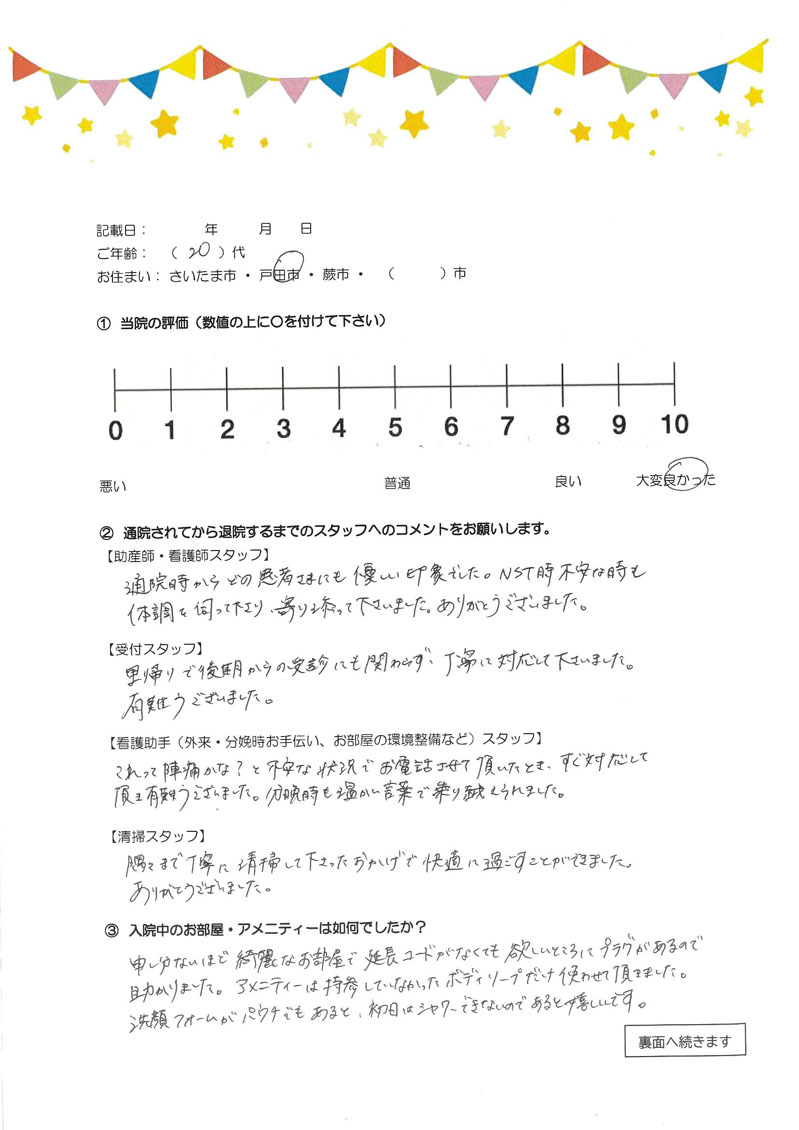 記載日： 年 月 日
ご年齢： （ 20 ）代
お住まい： さいたま市 ・ 戸田市 ・ 蕨市 ・ （ ）市
① 当院の評価（数値の上に〇を付けて下さい）
0 1 2 3 4 5 6 7 8 9 10
悪い 普通 良い 大変良かった
② 通院されてから退院するまでのスタッフへのコメントをお願いします。
【助産師・看護師スタッフ】
通院時からどの患者さまにも優しい印象でした。NST時不安な時も
体調を伺って下さり、寄り添って下さいました。ありがとうございました。
【受付スタッフ】
里帰りで後期からの受診にも関わらず、丁寧に対応して下さいました。
有難うございました。
【看護助手（外来・分娩時お手伝い、お部屋の環境整備など）スタッフ】
これって陣痛かな？と不安な状況でお電話させて頂いたとき、すぐ対応して
頂き有難うございました。分娩時も温かい言葉で乗り越えられました。
【清掃スタッフ】
隅々まで丁寧に清掃して下さったおかげで快適に過ごすことができました。
ありがとうございました。
③ 入院中のお部屋・アメニティーは如何でしたか？
申し分ないほど綺麗なお部屋で延長コードがなくても欲しいところにプラグがあるので
助かりました。アメニティーは持参していなかったボディソープだけ使わせて頂きました。
洗顔フォームがパウチでもあると、初日はシャワーできないのであると嬉しいです。
裏面へ続きます